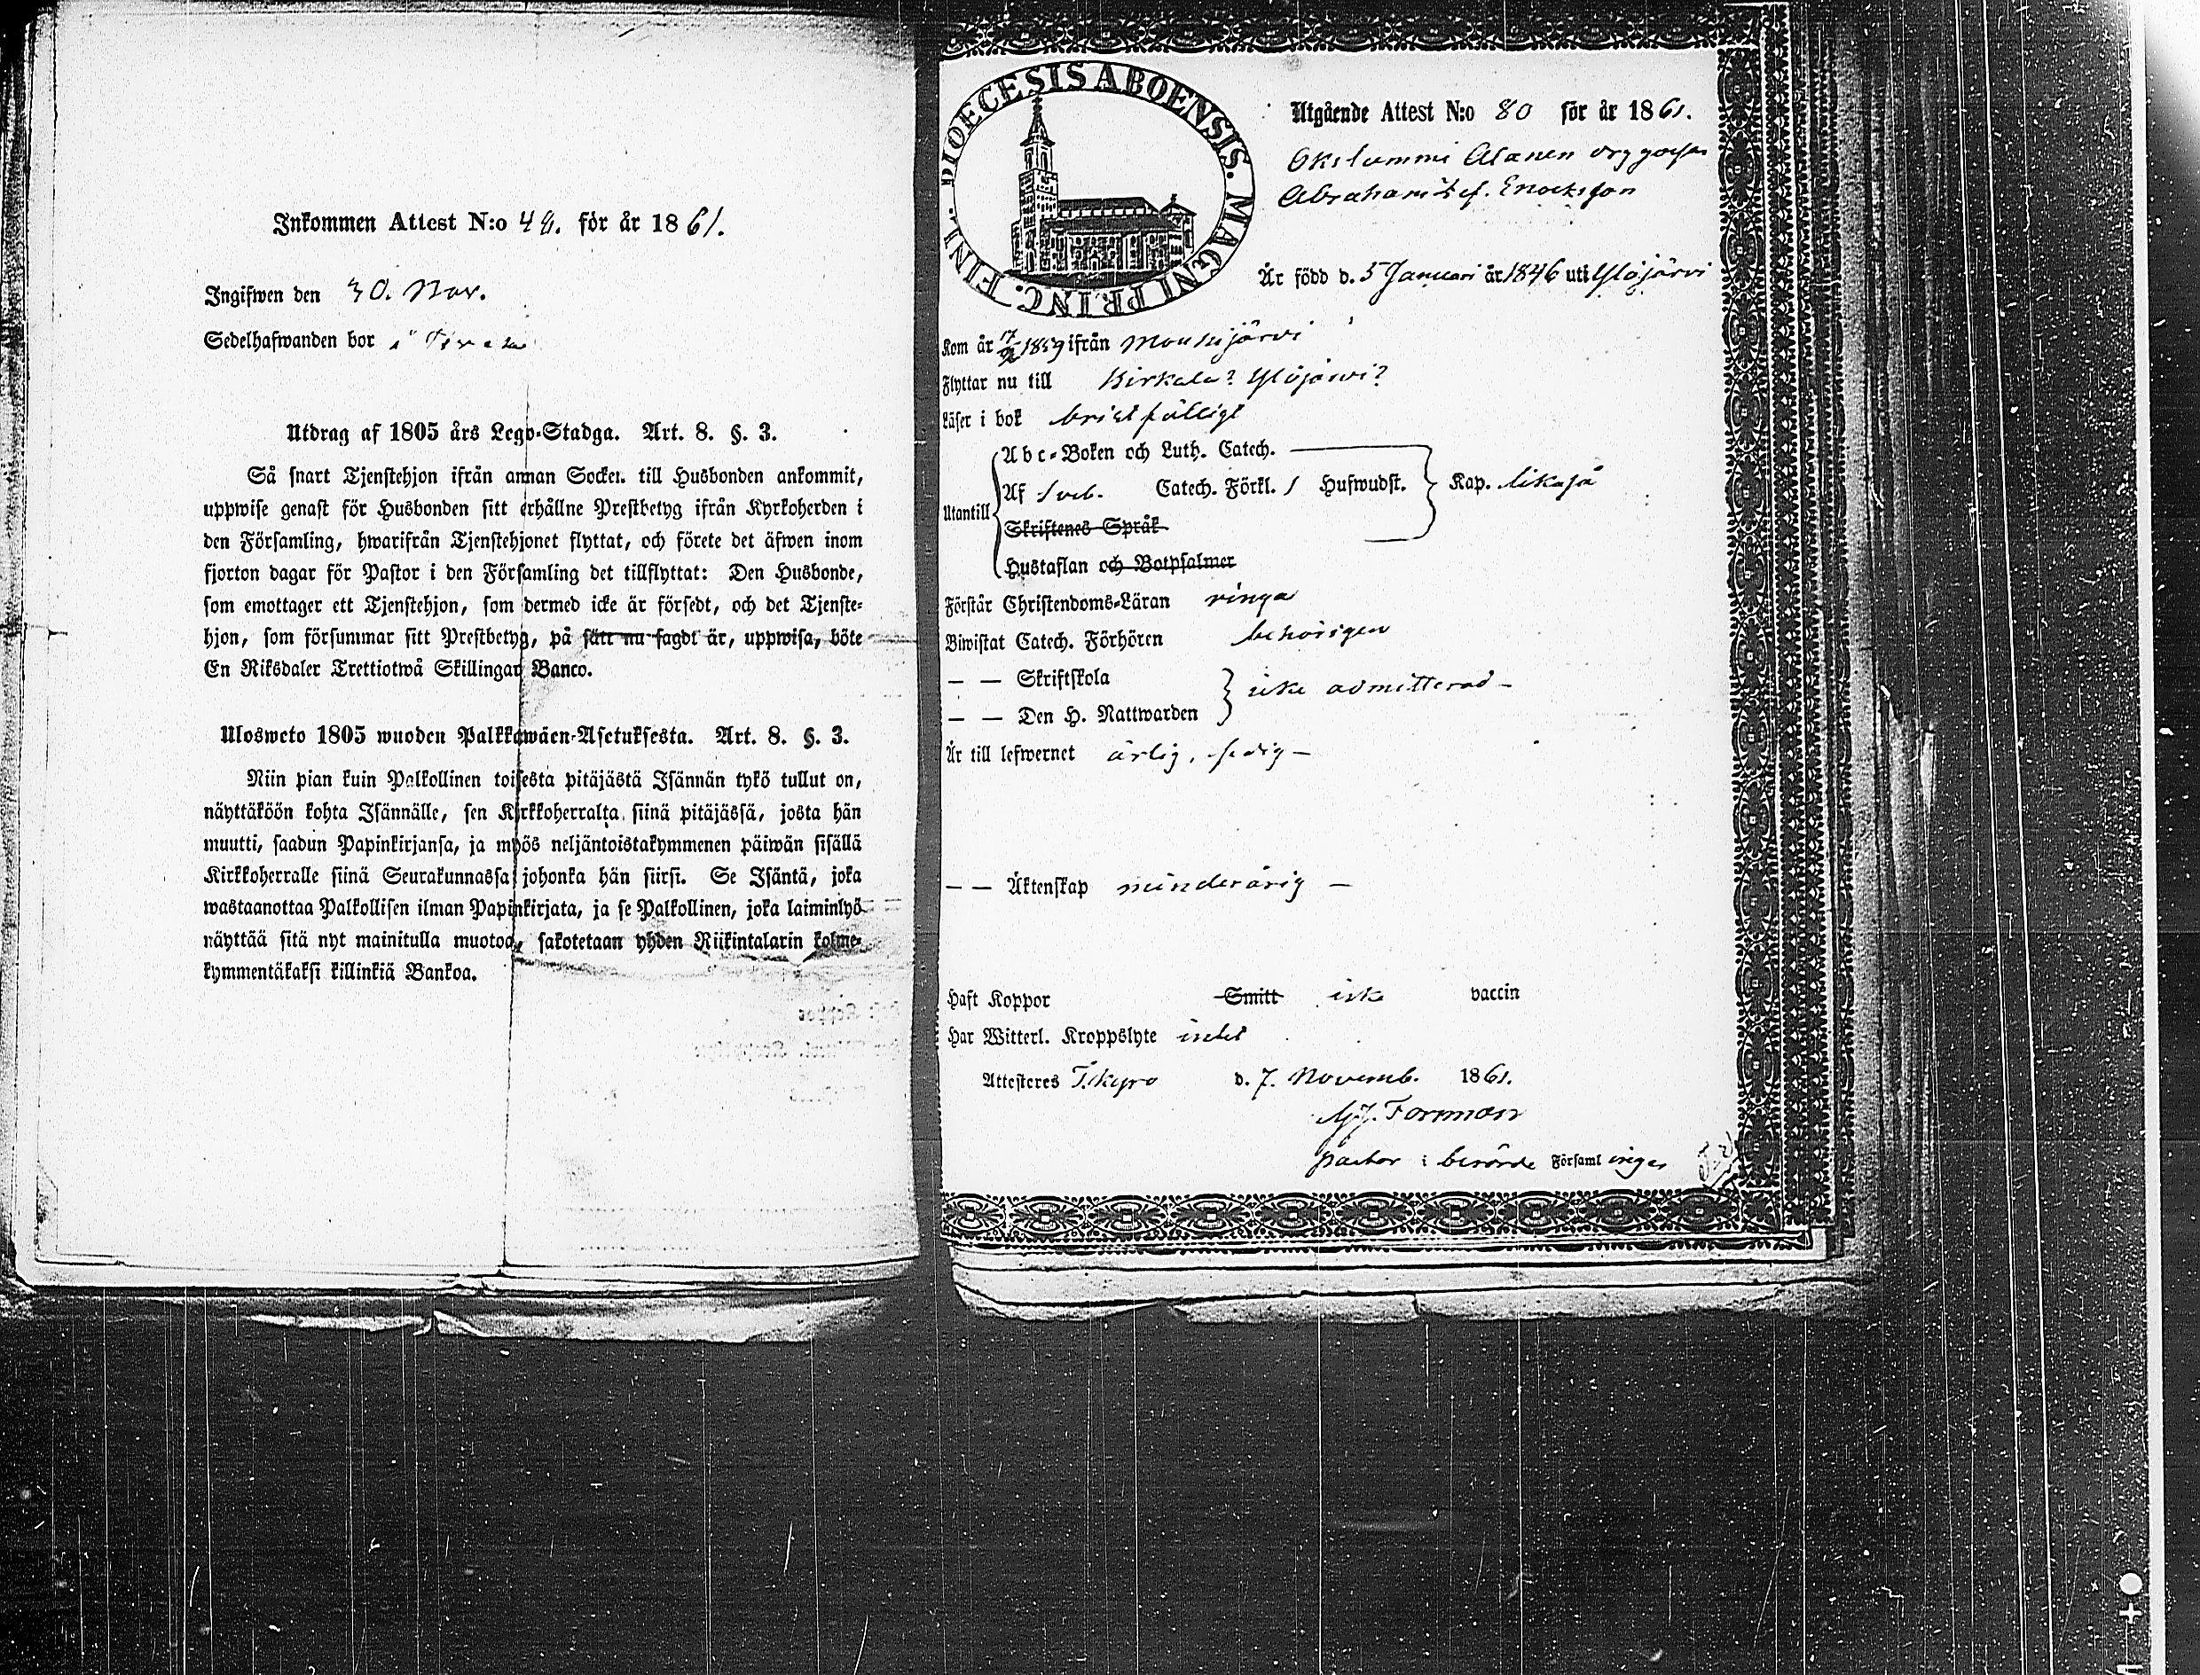 Inkommen Attest N:o 48. för år 1861.
Ingifwen den 30. Nov.
Sedelhafwanden bor i
Utdrag af 1805 års Lego-Stadga. Art. 8. §. 3.
Så snart Tjenstehjon ifrån annan Socken till Husbonden ankommit,
uppwise genast för Husbonden sitt erhållne Prestbetyg ifrån Kyrkoherden i
den Församling, hwarifrån Tjenstehjonet flyttat, och förete det äfwen inom
fjorton dagar för Pastor i den Församling det tillflyttat: Den Husbonde,
som emottager ett Tjenstehjon, som dermed icke är försedt, och det Tjenste-
hjon, som försummar sitt Prestbetyg, på sätt nu sagdt är, uppwisa, böte
En Riksdaler Trettiotwå Skillingar Banco.
Ulosweto 1805 wuoden Palkkawäen-Asetuksesta. Art. 8. §. 3.
Niin pian kuin Palkollinen toisesta pitäjästä Isännän tykö tullut on,
näyttäköön kohta Isännälle, sen Kirkkoherralta siinä pitäjässä, josta hän
muutti, saadun Papinkirjansa, ja myös neljäntoistakymmenen päiwän sisällä
Kirkkoherralle siinä Seurakunnassa johonka hän siirsi. Se Isäntä, joka
wastaanottaa Palkollisen ilman Papinkirjata, ja se Palkollinen, joka laiminlyö
näyttää sitä nyt mainitulla muotoa, sakotetaan yhden Riikintalarin kolme-
kymmentäkaksi killinkiä Bankoa.
DIOECESIS ABOENSIS. MAGNI PRINC. FINL.
Utgående Attest N:o 80 för år 1861.
Okslammi Alanen
Abraham Enocksson
Är född d. 5 Januari år 1846 uti Ylöjärvi
Kom år 1859 ifrån Mouhijärvi
Flyttar nu till Birkala? Ylöjärvi?
Läser i bok bristfälligt
Utantill
Abc-Boken och Luth. Catech.
Af Sveb. Catech. Förkl. 1 Hufwudst. Kap. likaså
Skriftenes Språk
Hustaflan och Botpsalmer
Förstår Christendoms-Läran ringa
Biwistat Catech. Förhören behörigen
— — Skriftskola
icke admitterad —
— — Den H. Nattwarden
Är till lefwernet ärlig, sedig —
— — Äktenskap minderårig —
Haft Koppor Smitt icke vaccin
Har Witterl. Kroppslyte intet
Attesteres T.kyro d. 7. Novemb. 1861.
Forsman
pastor i berörde Församlingar